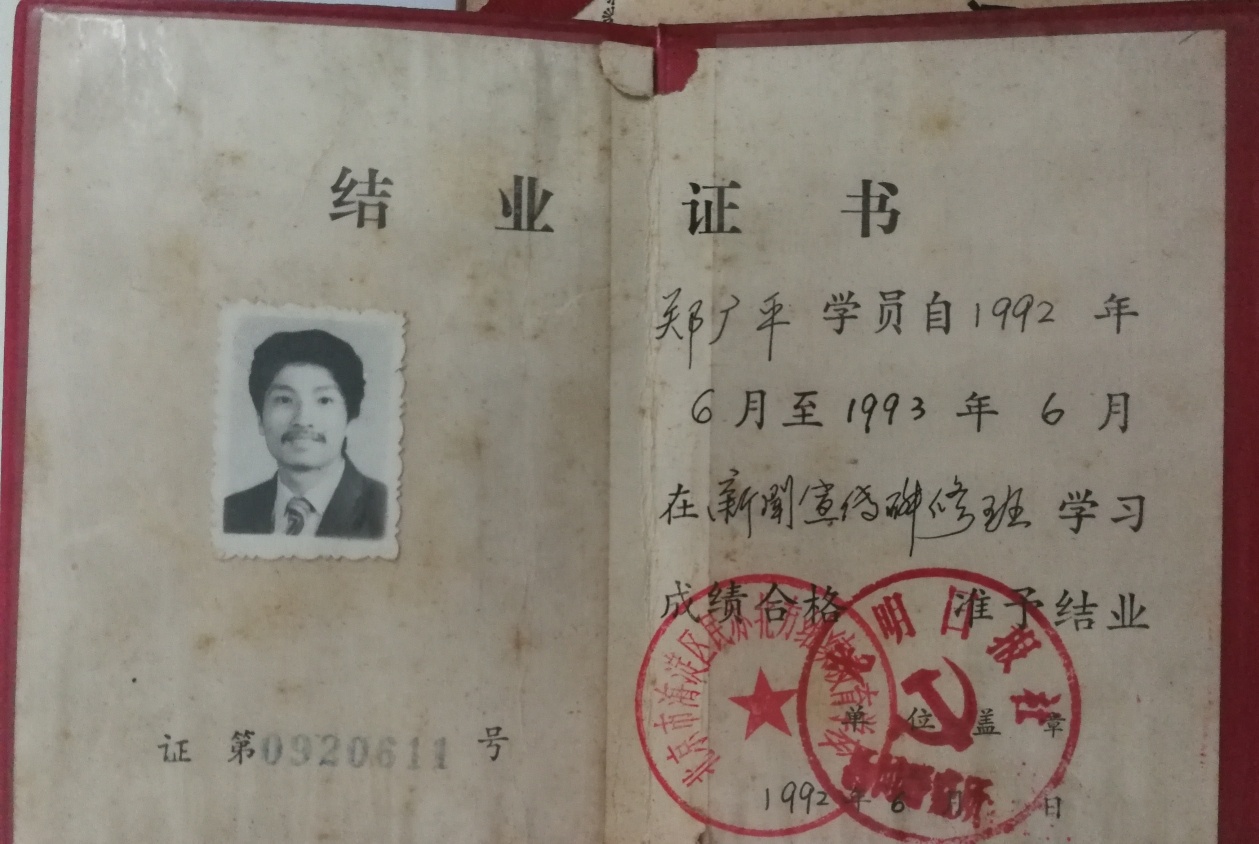 结业证书
郑广平 学员自1992年
6月至1993年6月
在新聞宣传研修班学习
成绩合格 准予结业
单位盖章
证 第0920611号
1992年6月 日
北京市海淀区民办北方
光明日报社